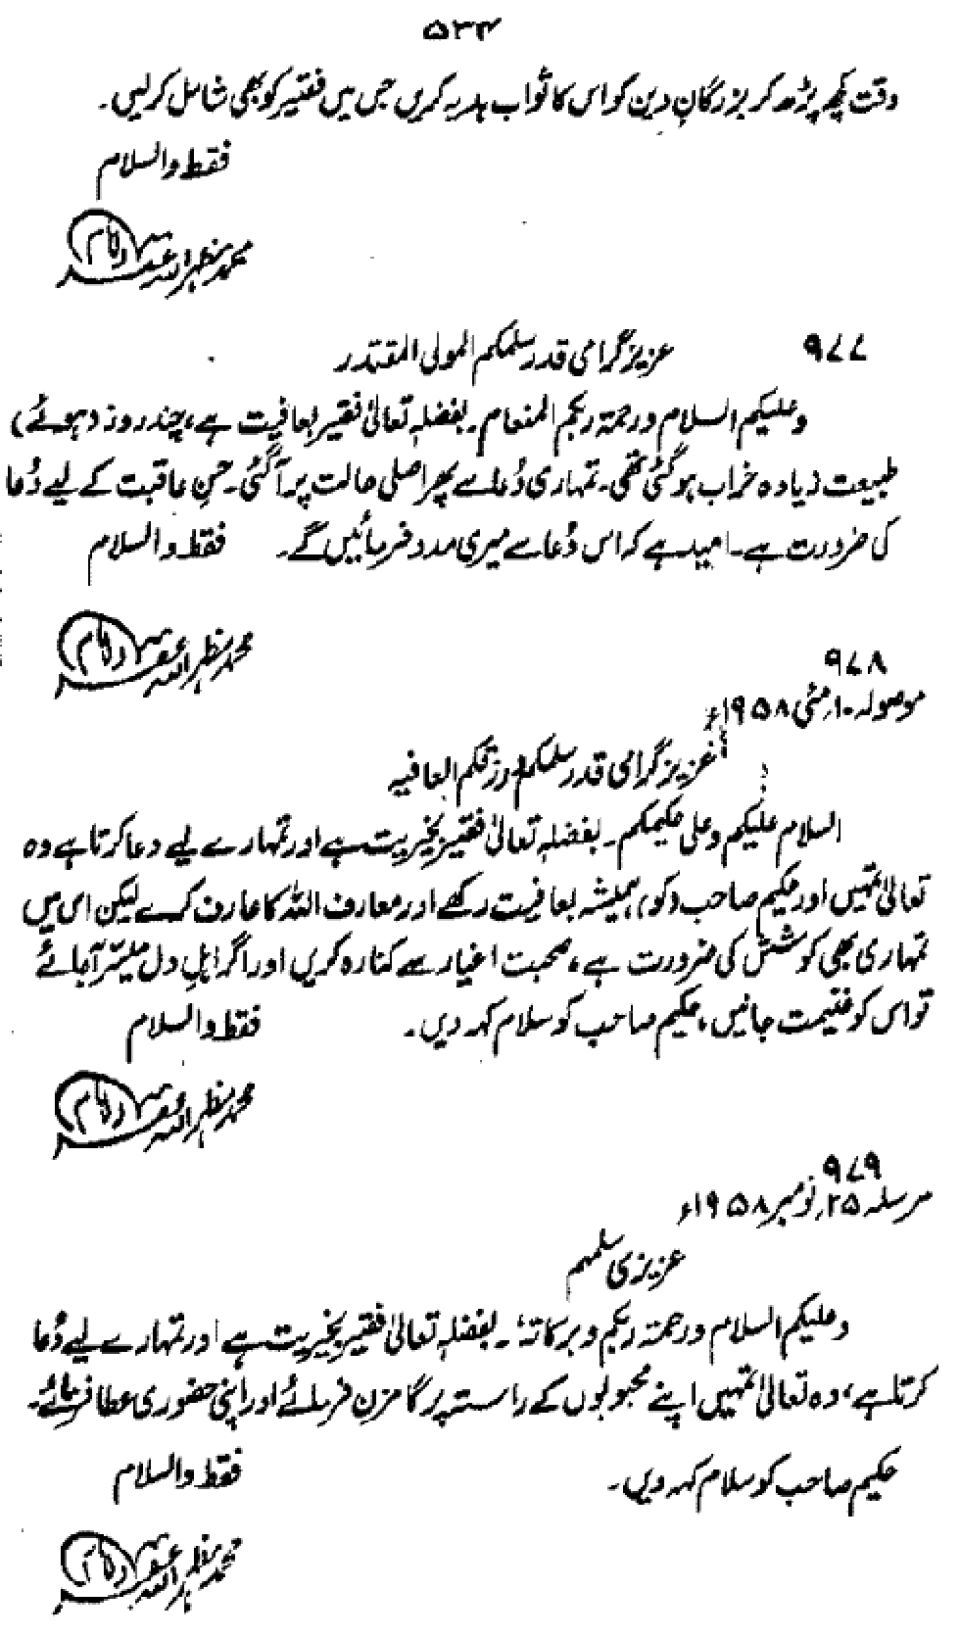 ۵۳۴
وقت کچھ پڑھ کر بزرگانِ دین کو اس کا ثواب ہدیہ کریں جس میں فقیر کو بھی شامل کرلیں۔
فقط والسلام
محمد مظہر اللہ
۹۷۷
عزیز گرامی قدر سلمکم المولی المقتدر
وعلیکم السلام ورحمۃ ربکم المنعام۔ بفضلہٖ تعالیٰ فقیر بعافیت ہے، چند روز (ہوئے)
طبیعت زیادہ خراب ہوگئی تھی۔ تمہاری دُعا سے پھر اصلی حالت پر آگئی۔ حسنِ عاقبت کے لیے دُعا
کی ضرورت ہے۔ امید ہے کہ اس دُعا سے میری مدد فرمائیں گے۔ فقط والسلام
محمد مظہر اللہ
۹۷۸
موصولہ ۱۰؍مئی ۱۹۵۸ء
عزیز گرامی قدر سلمکم ورزقکم العافیہ
السلام علیکم وعلی حکیمکم۔ بفضلہٖ تعالیٰ فقیر بخیریت ہے اور تمہارے لیے دعا کرتا ہے وہ
تعالیٰ تمہیں اور حکیم صاحب (کو) ہمیشہ بعافیت رکھے اور معارف اللہ کا عارف کرے لیکن اس میں
تمہاری بھی کوشش کی ضرورت ہے، صحبت اغیار سے کنارہ کریں اور اگر اہلِ دل میسّر آجائے
تو اس کو غنیمت جانیں، حکیم صاحب کو سلام کہہ دیں۔ فقط والسلام
محمد مظہر اللہ
۹۷۹
مرسلہ ۲۵؍نومبر ۱۹۵۸ء
عزیزی سلمہم
وعلیکم السلام ورحمۃ ربکم وبرکاتہٗ۔ بفضلہٖ تعالیٰ فقیر بخیریت ہے اور تمہارے لیے دُعا
کرتا ہے، وہ تعالیٰ تمہیں اپنے محبوبوں کے راستہ پر گامزن فرمائے اور اپنی حضوری عطا فرمائے۔
حکیم صاحب کو سلام کہہ دیں۔ فقط والسلام
محمد مظہر اللہ